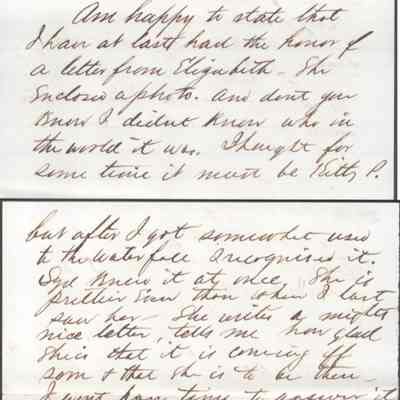 Am happy to state that
I have at last had the honor of
a letter from Elizabeth - She
Enclosed a photo. and dont you
Know I didnt Know who in
the world it was. I thought for
some time it must be Kitty P.
but after I got somewhat used
to the water fall I recognised it.
Syd Knew it at once. She is
prettier Even than when I last
saw her - She writes a mighty
nice letter, tells me how glad
She is that it is coming off
soon & that she is to be there -
I wont have time to answer it